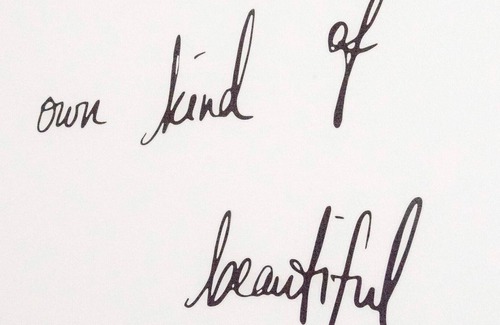 own kind of
beautiful